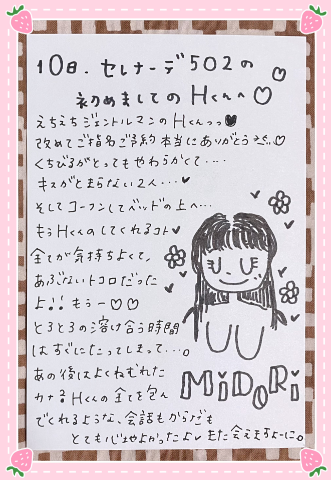 10日. セレナーデ502の
初めましてのHくんへ♡
えちえちジェントルマンのHくんっっ♥
改めてご指名ご予約本当にありがとう♡
くちびるがとってもやわらかくて・・・・
キスがとまらない2人・・・♥
そしてコーフンしてベッドの上へ・・・
もうHくんのしてくれるコト♥
全てが気持ちよくて、
あぶないトコロだった
よ!! もうー♡♡
とろとろの溶け合う時間
はすぐにたってしまって・・・。
あの後はよくねむれた
カナ? Hくんの全てを包ん
でくれるような、会話もからだも
とても心地よかったよ♥また会えますよーに。
MiDORi